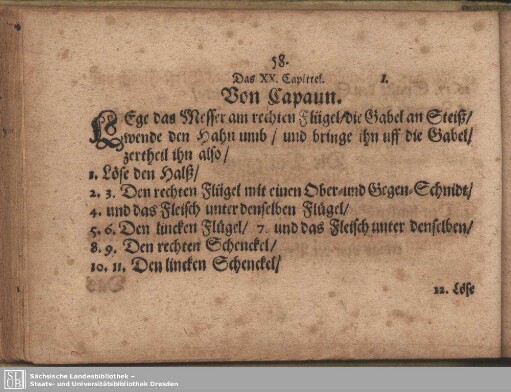 58.
Das XX. Capittel. 1.
Von Capaun.
LEge das Messer am rechten Flügel/die Gabel an Steiß/
wende den Hahn umb / und bringe ihn uff die Gabel/
zertheil ihn also/
1. Löse den Halß/
2. 3. Den rechten Flügel mit einen Ober-und Gegen-Schnidt/
4. und das Fleisch unter denselben Flügel/
5. 6. Den lincken Flügel/ 7. und das Fleisch unter denselben/
8. 9. Den rechten Schenckel/
10. 11. Den lincken Schenckel/
12. Löse
SLUB
Sächsische Landesbibliothek –
Staats- und Universitätsbibliothek Dresden